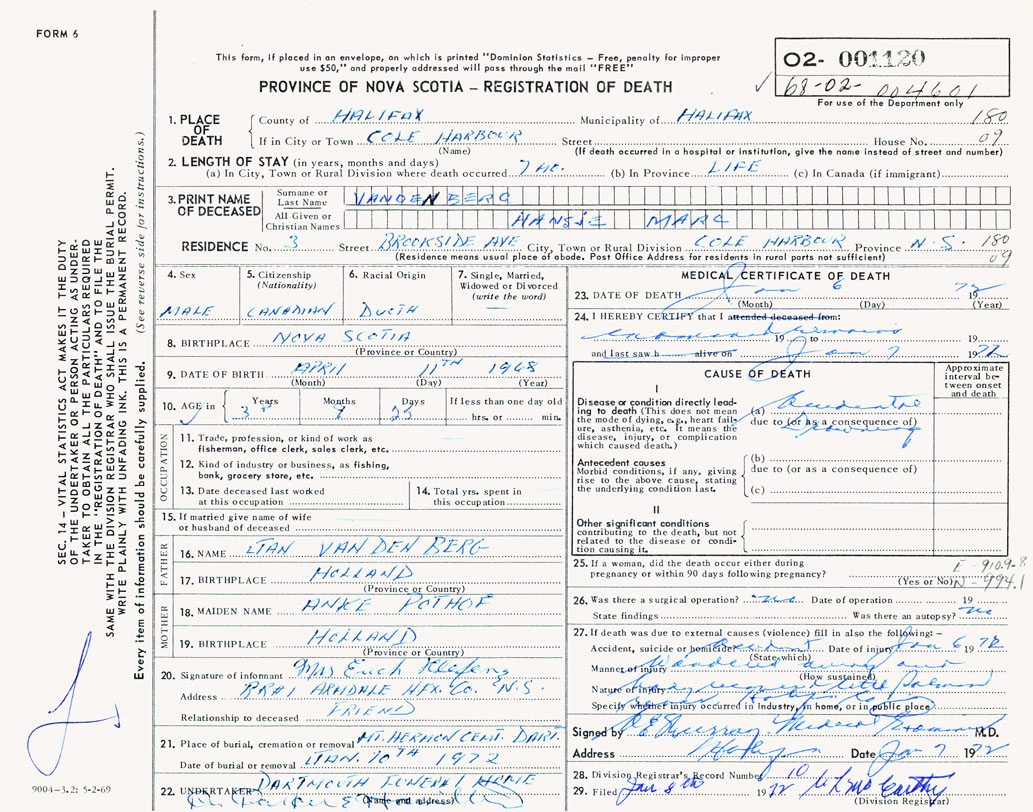 FORM 6
This form, if placed in an envelope, on which is printed "Dominion Statistics – Free, penalty for improper
use $50," and properly addressed will pass through the mail "FREE"
PROVINCE OF NOVA SCOTIA – REGISTRATION OF DEATH
02- 001120
✓ 68-02- 004601
For use of the Department only
1. PLACE OF DEATH
County of HALIFAX Municipality of HALIFAX 180
If in City or Town COLE HARBOUR Street House No. 09
(Name) (If death occurred in a hospital or institution, give the name instead of street and number)
2. LENGTH OF STAY (in years, months and days)
(a) In City, Town or Rural Division where death occurred 7 MO. (b) In Province LIFE (c) In Canada (if immigrant)
3. PRINT NAME OF DECEASED
Surname or Last Name VANDEN BERG
All Given or Christian Names HANSIE MARC
RESIDENCE No. 3 Street BROOKSIDE AVE City, Town or Rural Division COLE HARBOUR Province N.S. 180
(Residence means usual place of abode. Post Office Address for residents in rural parts not sufficient) 09
4. Sex
MALE
5. Citizenship
(Nationality)
CANADIAN
6. Racial Origin
DUCTH
7. Single, Married,
Widowed or Divorced
(write the word)
—
8. BIRTHPLACE NOVA SCOTIA
(Province or Country)
9. DATE OF BIRTH APRIL 11TH 1968
(Month) (Day) (Year)
10. AGE in Years Months Days If less than one day old
3 25 hrs. or min.
OCCUPATION
11. Trade, profession, or kind of work as
fisherman, office clerk, sales clerk, etc.
12. Kind of industry or business, as fishing,
bank, grocery store, etc.
13. Date deceased last worked
at this occupation
14. Total yrs. spent in
this occupation
15. If married give name of wife
or husband of deceased
FATHER
16. NAME VAN DEN BERG
17. BIRTHPLACE HOLLAND
(Province or Country)
MOTHER
18. MAIDEN NAME ANKE POTHOF
19. BIRTHPLACE HOLLAND
(Province or Country)
20. Signature of informant Mrs
Address RR#1 ARMDALE HFX. CO. N.S.
Relationship to deceased FRIEND
21. Place of burial, cremation or removal MT. HERMON CEMT. DART.
Date of burial or removal JAN. 10TH 1972
22. UNDERTAKER DARTMOUTH FUNERAL HOME
(Name and address)
MEDICAL CERTIFICATE OF DEATH
23. DATE OF DEATH Jan 6 1972
(Month) (Day) (Year)
24. I HEREBY CERTIFY that I attended deceased from:
19 to 19
and last saw h alive on Jan 7 1972
CAUSE OF DEATH
Approximate
interval be-
tween onset
and death
I
Disease or condition directly lead-
ing to death (This does not mean
the mode of dying, e.g., heart fail-
ure, asthenia, etc. It means the
disease, injury, or complication
which caused death.)
(a) Accidental
due to (or as a consequence of)
Drowning
Antecedent causes
Morbid conditions, if any, giving
rise to the above cause, stating
the underlying condition last.
(b)
due to (or as a consequence of)
(c)
II
Other significant conditions
contributing to the death, but not
related to the disease or condi-
tion causing it.
25. If a woman, did the death occur either during
pregnancy or within 90 days following pregnancy?
(Yes or No)
E-910.9-8
N-994.1
26. Was there a surgical operation? no Date of operation 19
State findings Was there an autopsy? no
27. If death was due to external causes (violence) fill in also the following: –
Accident, suicide or homicide? accident Date of injury Jan 6 1972
(State which)
Manner of injury Wandered away and
(How sustained)
Nature of injury
Specify whether injury occurred in Industry, in home, or in public place
Signed by Murray Medical Examiner M.D.
Address Halifax Date Jan 7 1972
28. Division Registrar's Record Number 10
29. Filed Jan 8th 1972 McCarthy
(Division Registrar)
SEC. 14 – VITAL STATISTICS ACT MAKES IT THE DUTY
OF THE UNDERTAKER OR PERSON ACTING AS UNDER-
TAKER TO OBTAIN ALL THE PARTICULARS REQUIRED
IN THE "REGISTRATION OF DEATH" AND TO FILE THE
SAME WITH THE DIVISION REGISTRAR WHO SHALL ISSUE THE BURIAL PERMIT.
WRITE PLAINLY WITH UNFADING INK. THIS IS A PERMANENT RECORD.
Every item of information should be carefully supplied. (See reverse side for instructions.)
9004-3.2: 5-2-69